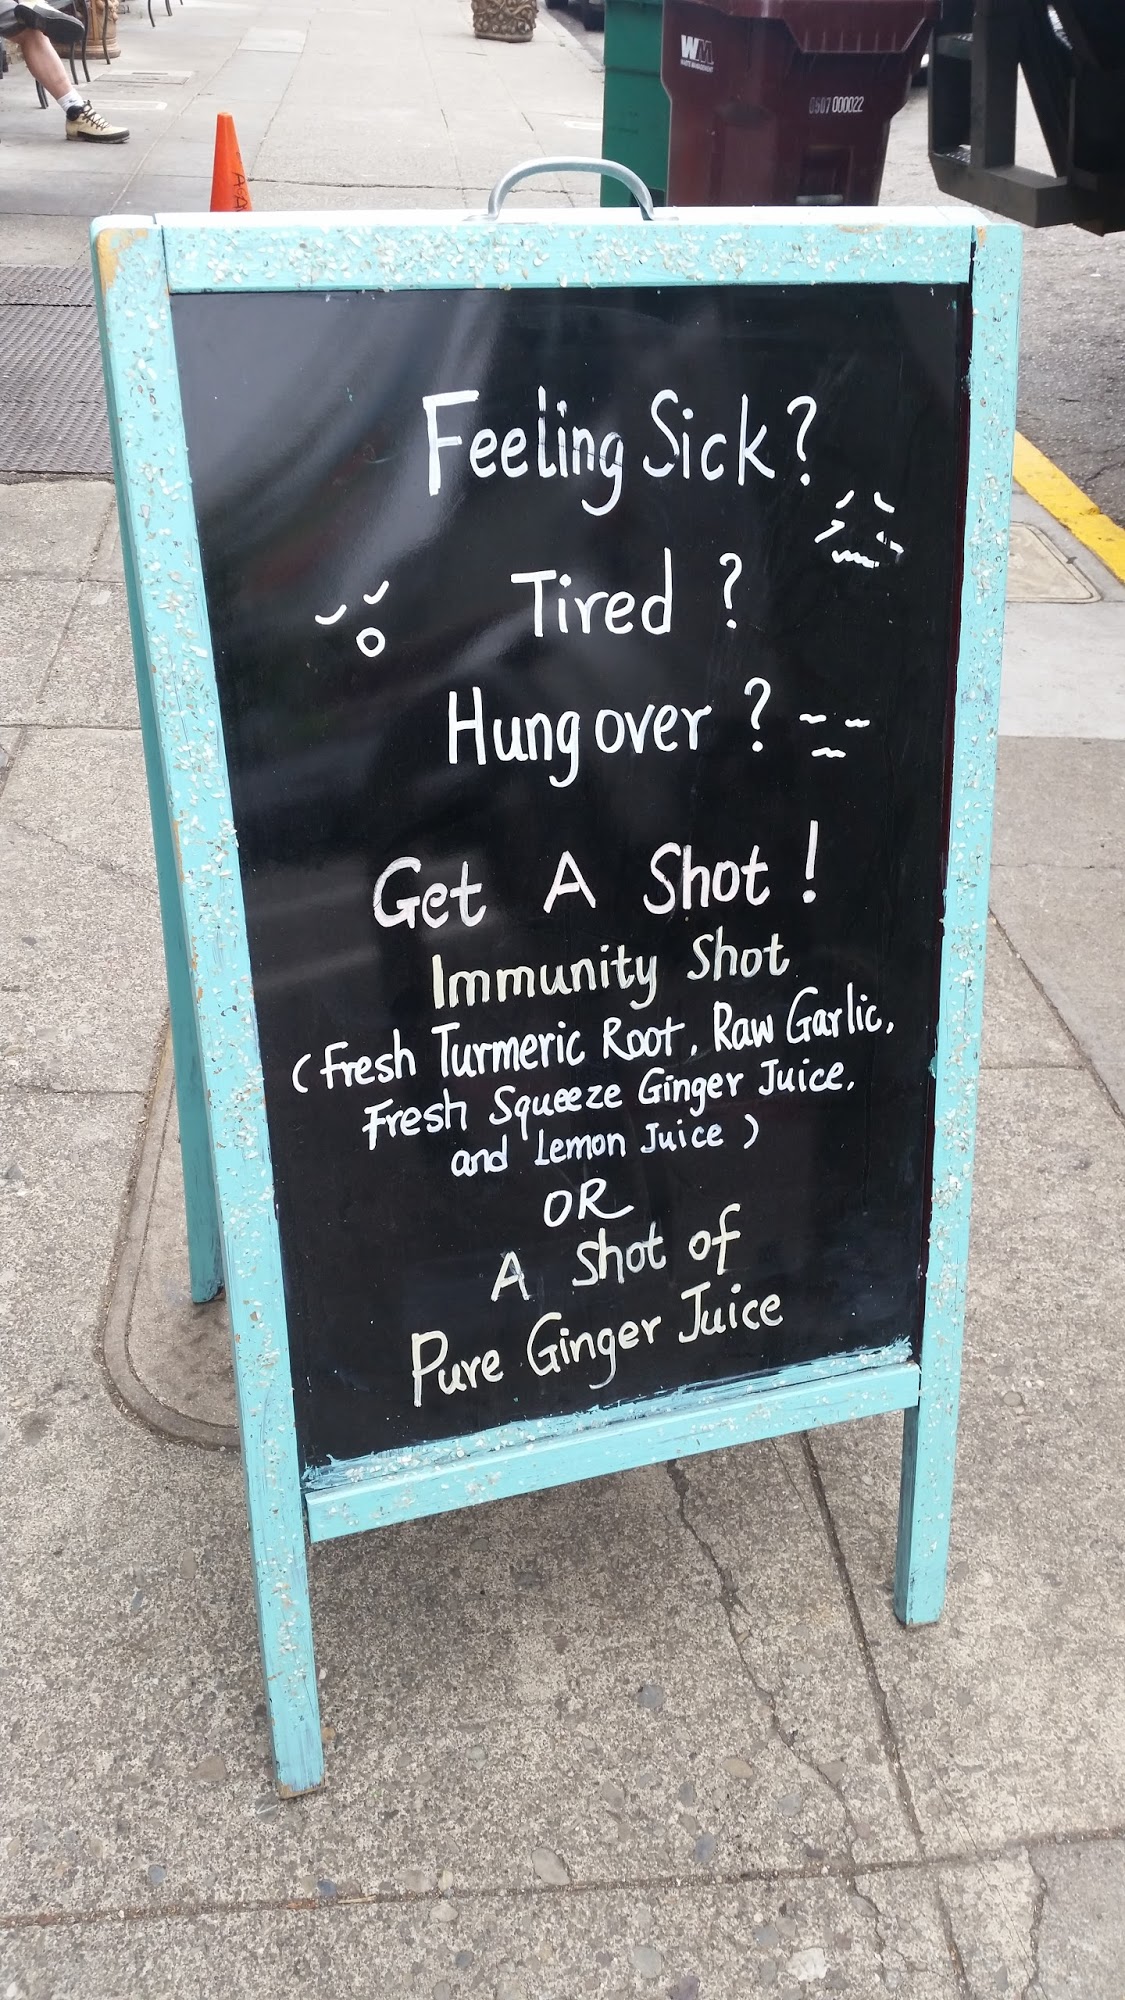 WM
WASTE MANAGEMENT
0507 000022
Feeling Sick?
Tired ?
Hungover ?
Get A Shot !
Immunity Shot
(Fresh Turmeric Root, Raw Garlic,
Fresh Squeeze Ginger Juice,
and Lemon Juice)
OR
A Shot of
Pure Ginger Juice